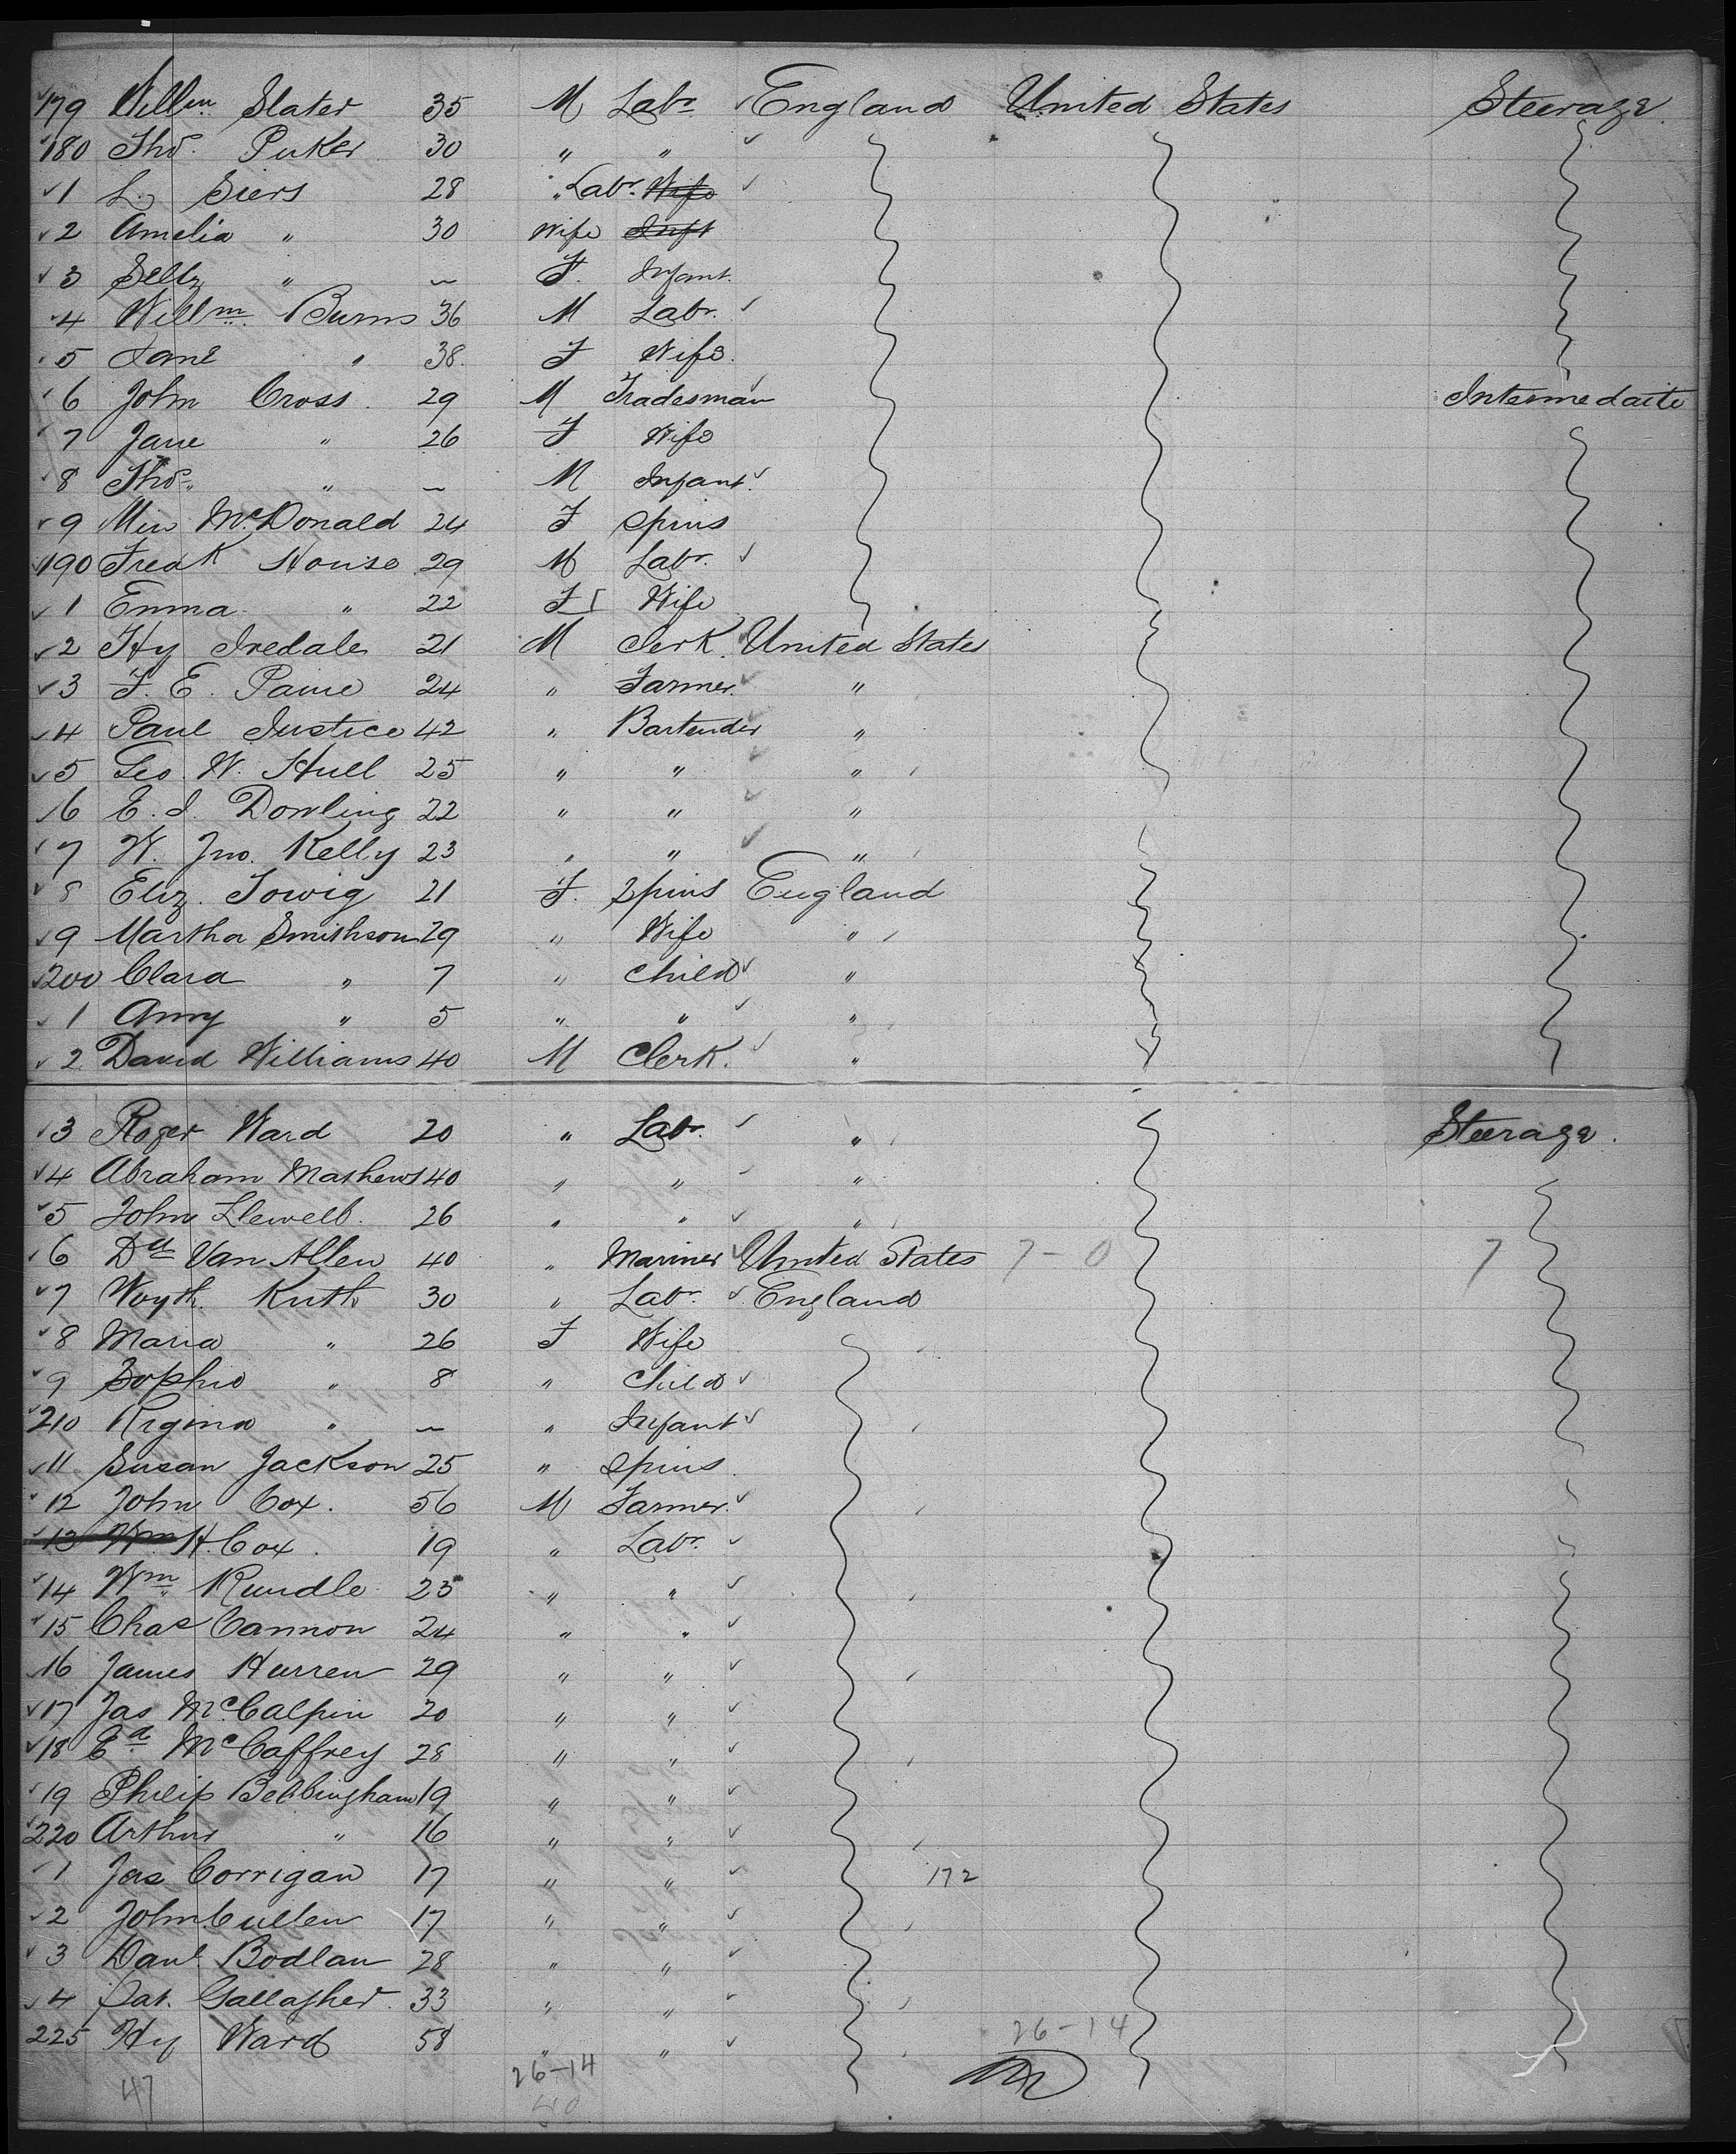 179 Willm Slater 35 M Labr England United States Steerage
180 Thos. Puker 30 " "
1 L. Siers 28 " Labr. Wife
2 Amelia " 30 Wife Inft
3 " — F. Infant
4 Willm. Burns 36 M Labr.
5 Jane " 38. F Wife.
6 John Cross 29 M Tradesman Intermedaite
7 Jane " 26 F Wife
8 Thos. " — M Infant
9 Min McDonald 24 F Spins
190 Fredk House 29 M Labr.
1 Emma " 22 F Wife
2 Hy Iredale 21 M Clerk United States
3 F. E. Paine 24 " Farmer "
4 Paul Justice 42 " Bartender "
5 Geo. W. Hull 25 " " "
6 E. J. Dowling 22 " " "
7 W. Jno. Kelly 23 " " "
8 Eliz. Towig 21 F. Spins England
9 Martha Smithson 29 " Wife "
200 Clara " 7 " Child "
1 Amy " 5 " " "
2 David Williams 40 M Clerk. "
3 Roger Ward 20 " Labr. " Steerage.
4 Abraham Mathews 40 " " "
5 John Llewell 26 " " "
6 Van Allen 40 " Mariner United States 7-0 7
7 Woyth Kuth 30 " Labr England
8 Maria " 26 F Wife
9 Sophie " 8 " Child
210 Regina " — " Infant
11 Susan Jackson 25 " Spins
12 John Cox. 56 M Farmer
13 Wm H. Cox. 19 " Labr.
14 Wm Rundle 23 " "
15 Chas Cannon 24 " "
16 James Hurren 29 " "
17 Jas McCalpin 20 " "
18 Ed McCaffrey 28 " "
19 Philip Bebbingham 19 " "
220 Arthur " 16 " "
1 Jas Corrigan 17 " " 172
2 John Cullen 17 " "
3 Danl Bodlan 28 " "
4 Pat. Gallagher 33 " "
225 Hy Ward 58 " " 26-14
47 26-14
40